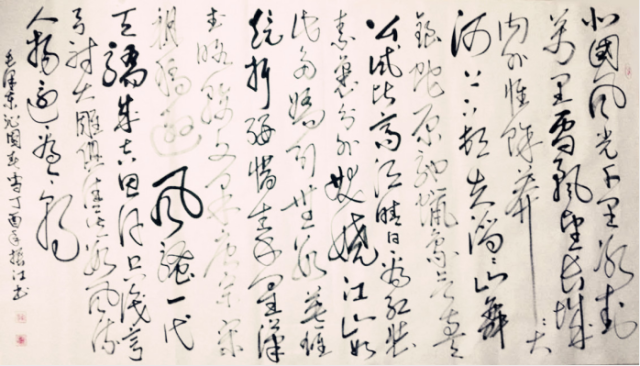 北國风光千里冰封
万里雪飘望长城
内外惟馀莽々大
河上下顿失滔々山舞
银蛇原驰蜡象欲与天
公试比高须晴日看红装
素裹分外妖娆江山如
此多娇引无数英雄
竞折腰惜秦皇汉
武略输文采唐宗宋
祖稍逊风骚一代
天骄成吉思汗只识弯
弓射大雕俱往矣数风流
人物还看今朝
毛泽东沁园春雪丁酉年振江书